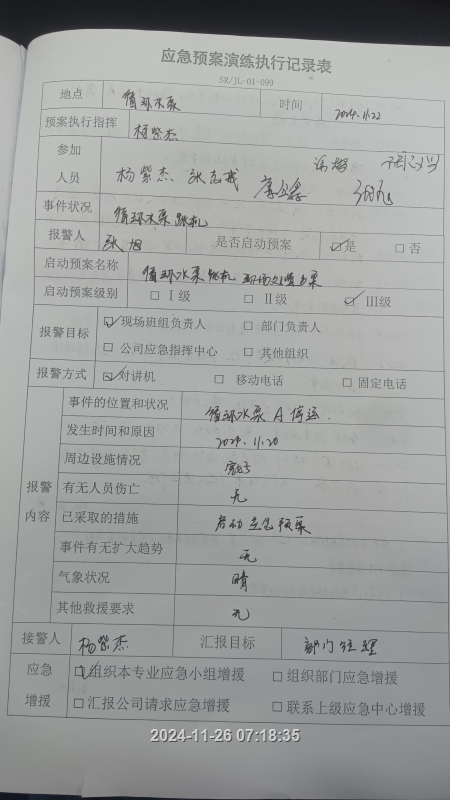 应急预案演练执行记录表
SR/JL-01-099
地点 循环水泵 时间 2024.11.22
预案执行指挥 杨紫杰
参加人员 杨紫杰、张志成
事件状况 循环水泵跳机
报警人 张旭 是否启动预案 ☑是 □否
启动预案名称 循环水泵跳机现场处置方案
启动预案级别 □Ⅰ级 □Ⅱ级 ☑Ⅲ级
报警目标 ☑现场班组负责人 □部门负责人
□公司应急指挥中心 □其他组织
报警方式 ☑对讲机 □移动电话 □固定电话
报警内容
事件的位置和状况 循环水泵A停运.
发生时间和原因 2024.11.20
周边设施情况 完好
有无人员伤亡 无
已采取的措施 启动应急预案
事件有无扩大趋势 无
气象状况 晴
其他救援要求 无
接警人 杨紫杰 汇报目标 部门经理
应急增援 ☑组织本专业应急小组增援 □组织部门应急增援
□汇报公司请求应急增援 □联系上级应急中心增援
2024-11-26 07:18:35